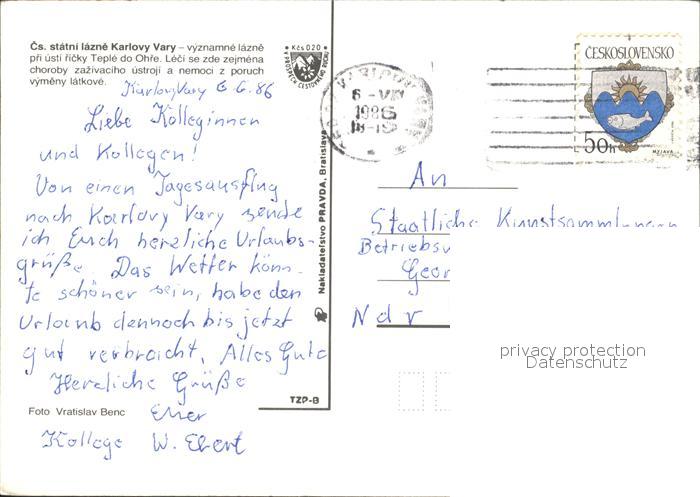 Čs. státní lázně Karlovy Vary – významné lázně
při ústí říčky Teplé do Ohře. Léčí se zde zejména
choroby zažívacího ústrojí a nemoci z poruch
výměny látkové.
Kčs 0,20
Karlovy Vary 6.6.86
Liebe Kolleginnen
und Kollegen!
Von einen Tagesausflug
nach Karlovy Vary sende
ich Euch herzliche Urlaubs-
grüße. Das Wetter könn-
te schöner sein, habe den
Urlaub dennoch bis jetzt
gut verbracht. Alles Gute
Herzliche Grüße
Euer
Kollege W. Ebert
Foto Vratislav Benc
TZP-B
Nakladatelství PRAVDA, Bratislava
1986
ČESKOSLOVENSKO
50h
An
Staatliche Kunstsammlungen
privacy protection
Datenschutz